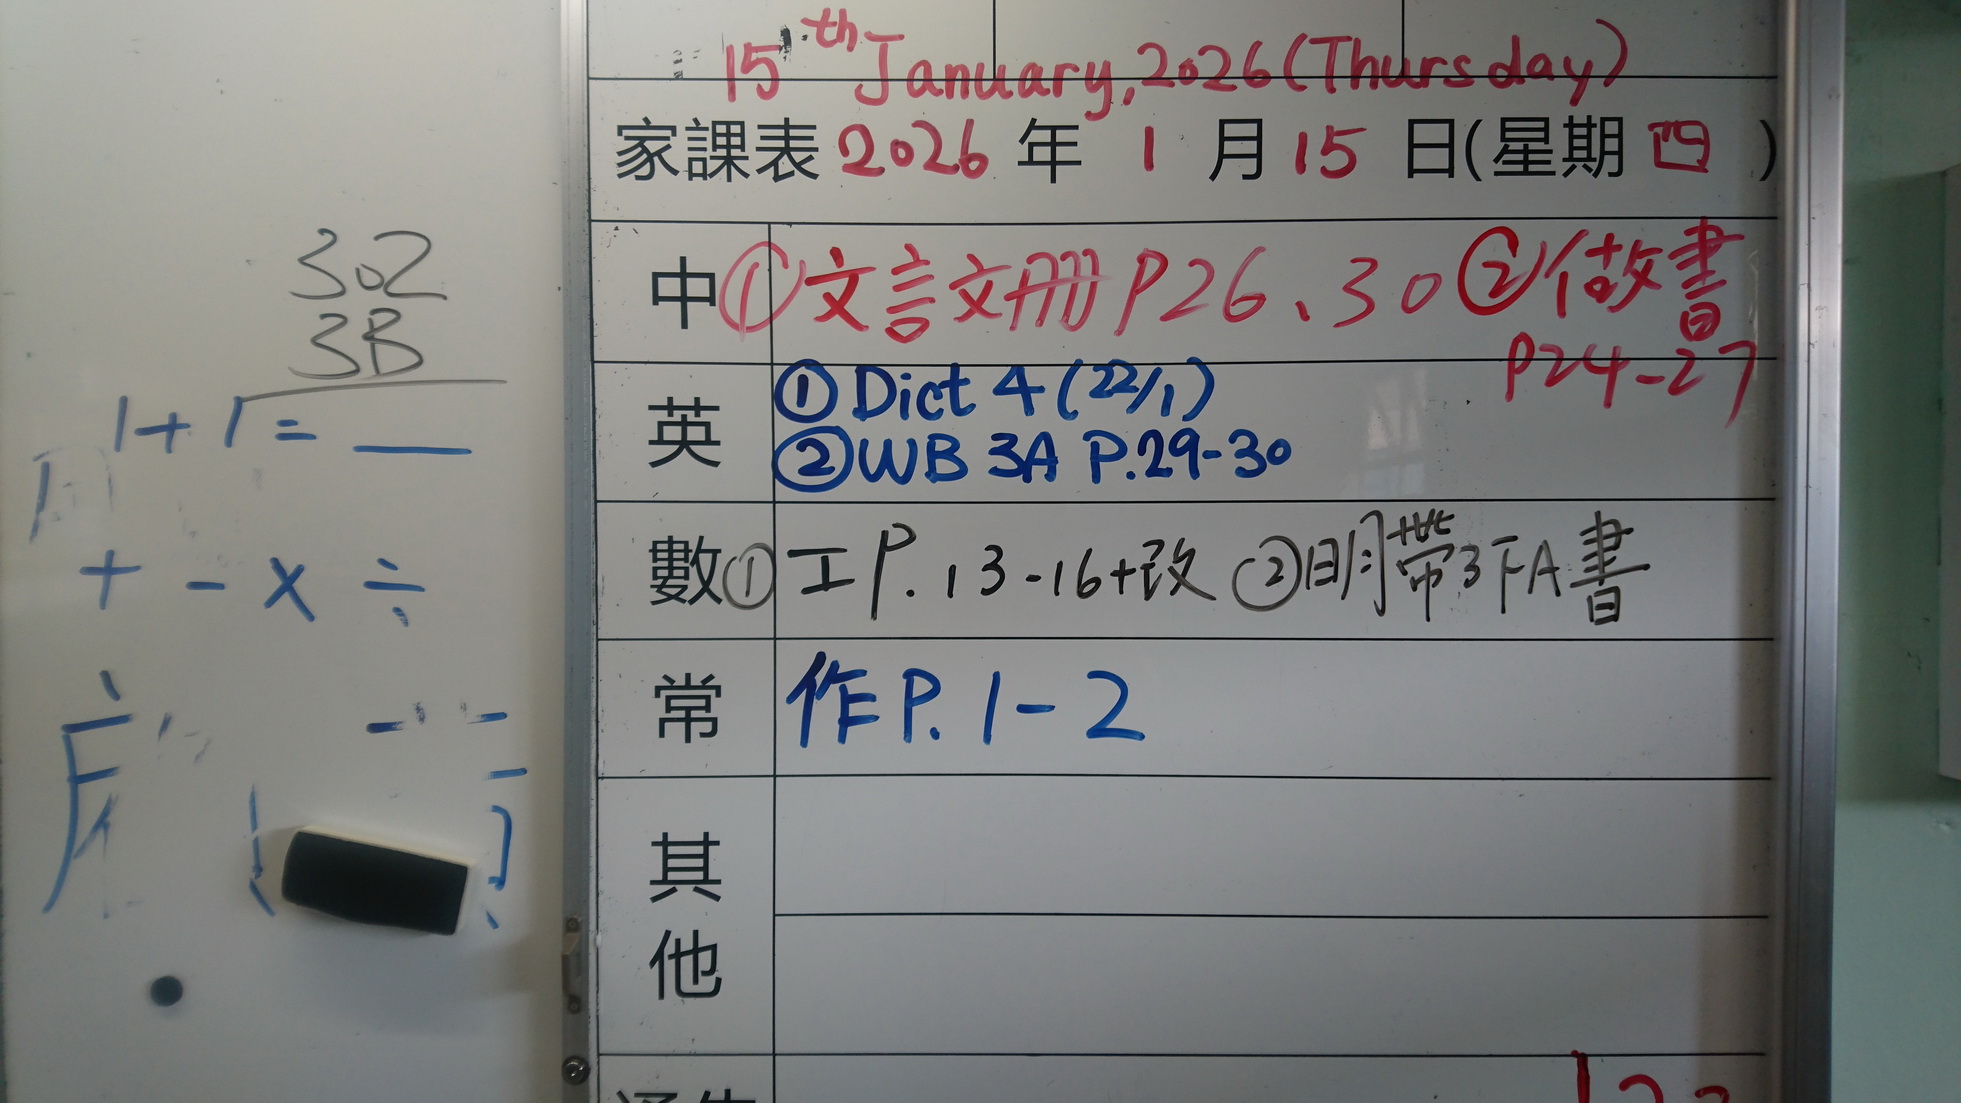 15th January, 2026 (Thursday)
家課表 2026 年 1 月 15 日(星期 四 )
中 ①文言文冊P26、30 ②做書
P24-27
英 ① Dict 4 (22/1)
② WB 3A P.29-30
數 ① 工P.13-16+改 ②明帶3下A書
常 作P. 1-2
其他
302
3B
1+1= __
+ - × ÷